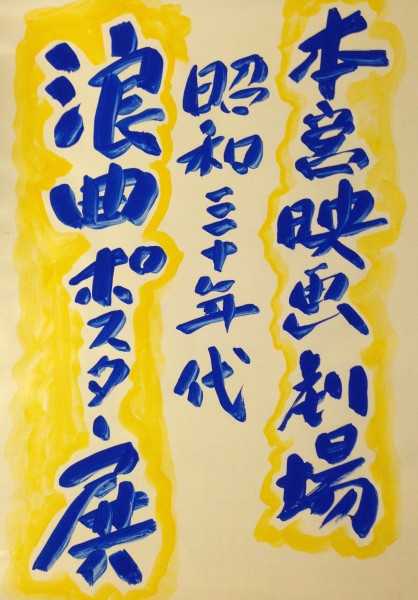 本宮映画劇場
昭和三十年代
浪曲ポスター展